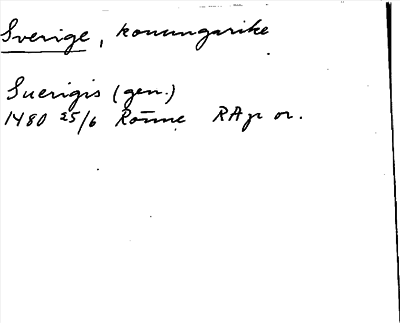 Sverige, konungarike
Suerigis (gen.)
1480 25/6 Rönne RAp or.